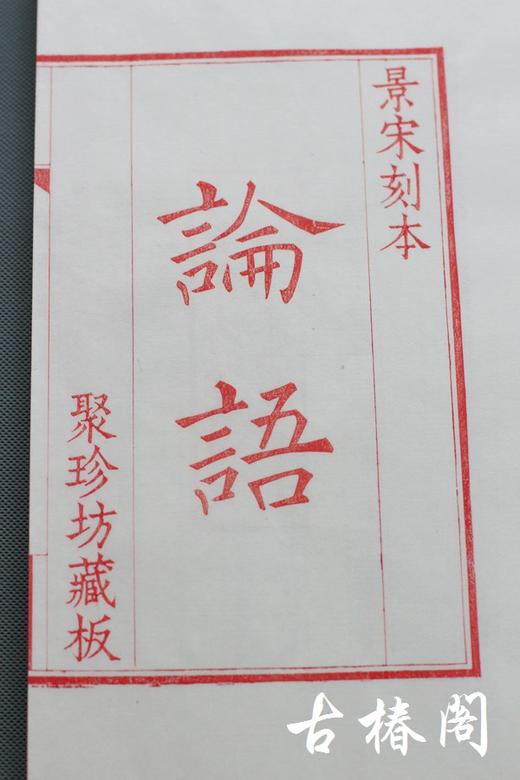 景宋刻本
論語
聚珍坊藏板
古椿阁